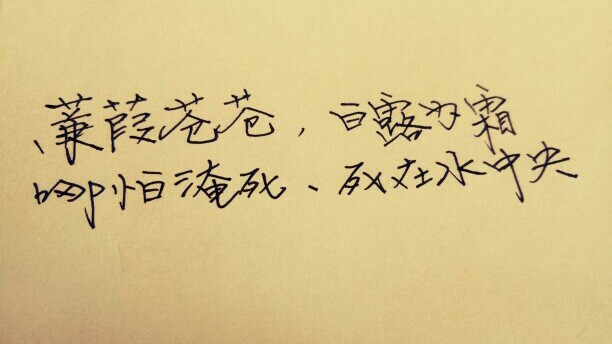 蒹葭苍苍，白露为霜
哪怕淹死、死在水中央